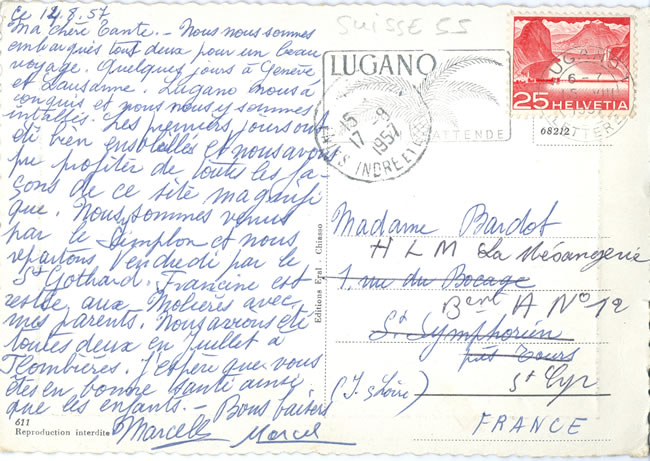 Ce 14.8.57
Ma chère Tante. - Nous nous sommes
embarqués tout deux pour un beau
voyage. Quelques jours à Genève
et Lausanne. Lugano nous a
conquis et nous nous y sommes
installés. Les premiers jours ont
été bien ensoleillés et nous avons
pu profiter de toutes les fa-
çons de ce site magnifi
que. Nous sommes venus
par le Simplon et nous
repartons Vendredi par le
St Gothard. Francine est
restée aux Molières avec
mes parents. Nous avions été
toutes deux en Juillet à
Plombières. J'espère que vous
êtes en bonne santé ainsi
que les enfants. - Bons baisers
Marcelle Marcel
611
Reproduction interdite
Editions Eral - Chiasso
SUISSE 55
LUGANO
ATTENDE
15
17-8
1957
INDRE ET
6-7
VIII
1957
LETTERE
25 HELVETIA
68212
Madame Bardot
HLM La Mésangerie
1, rue du Bocage
Bent A No 12
St Symphorien
près Tours
St Cyr
(I. & Loire)
FRANCE